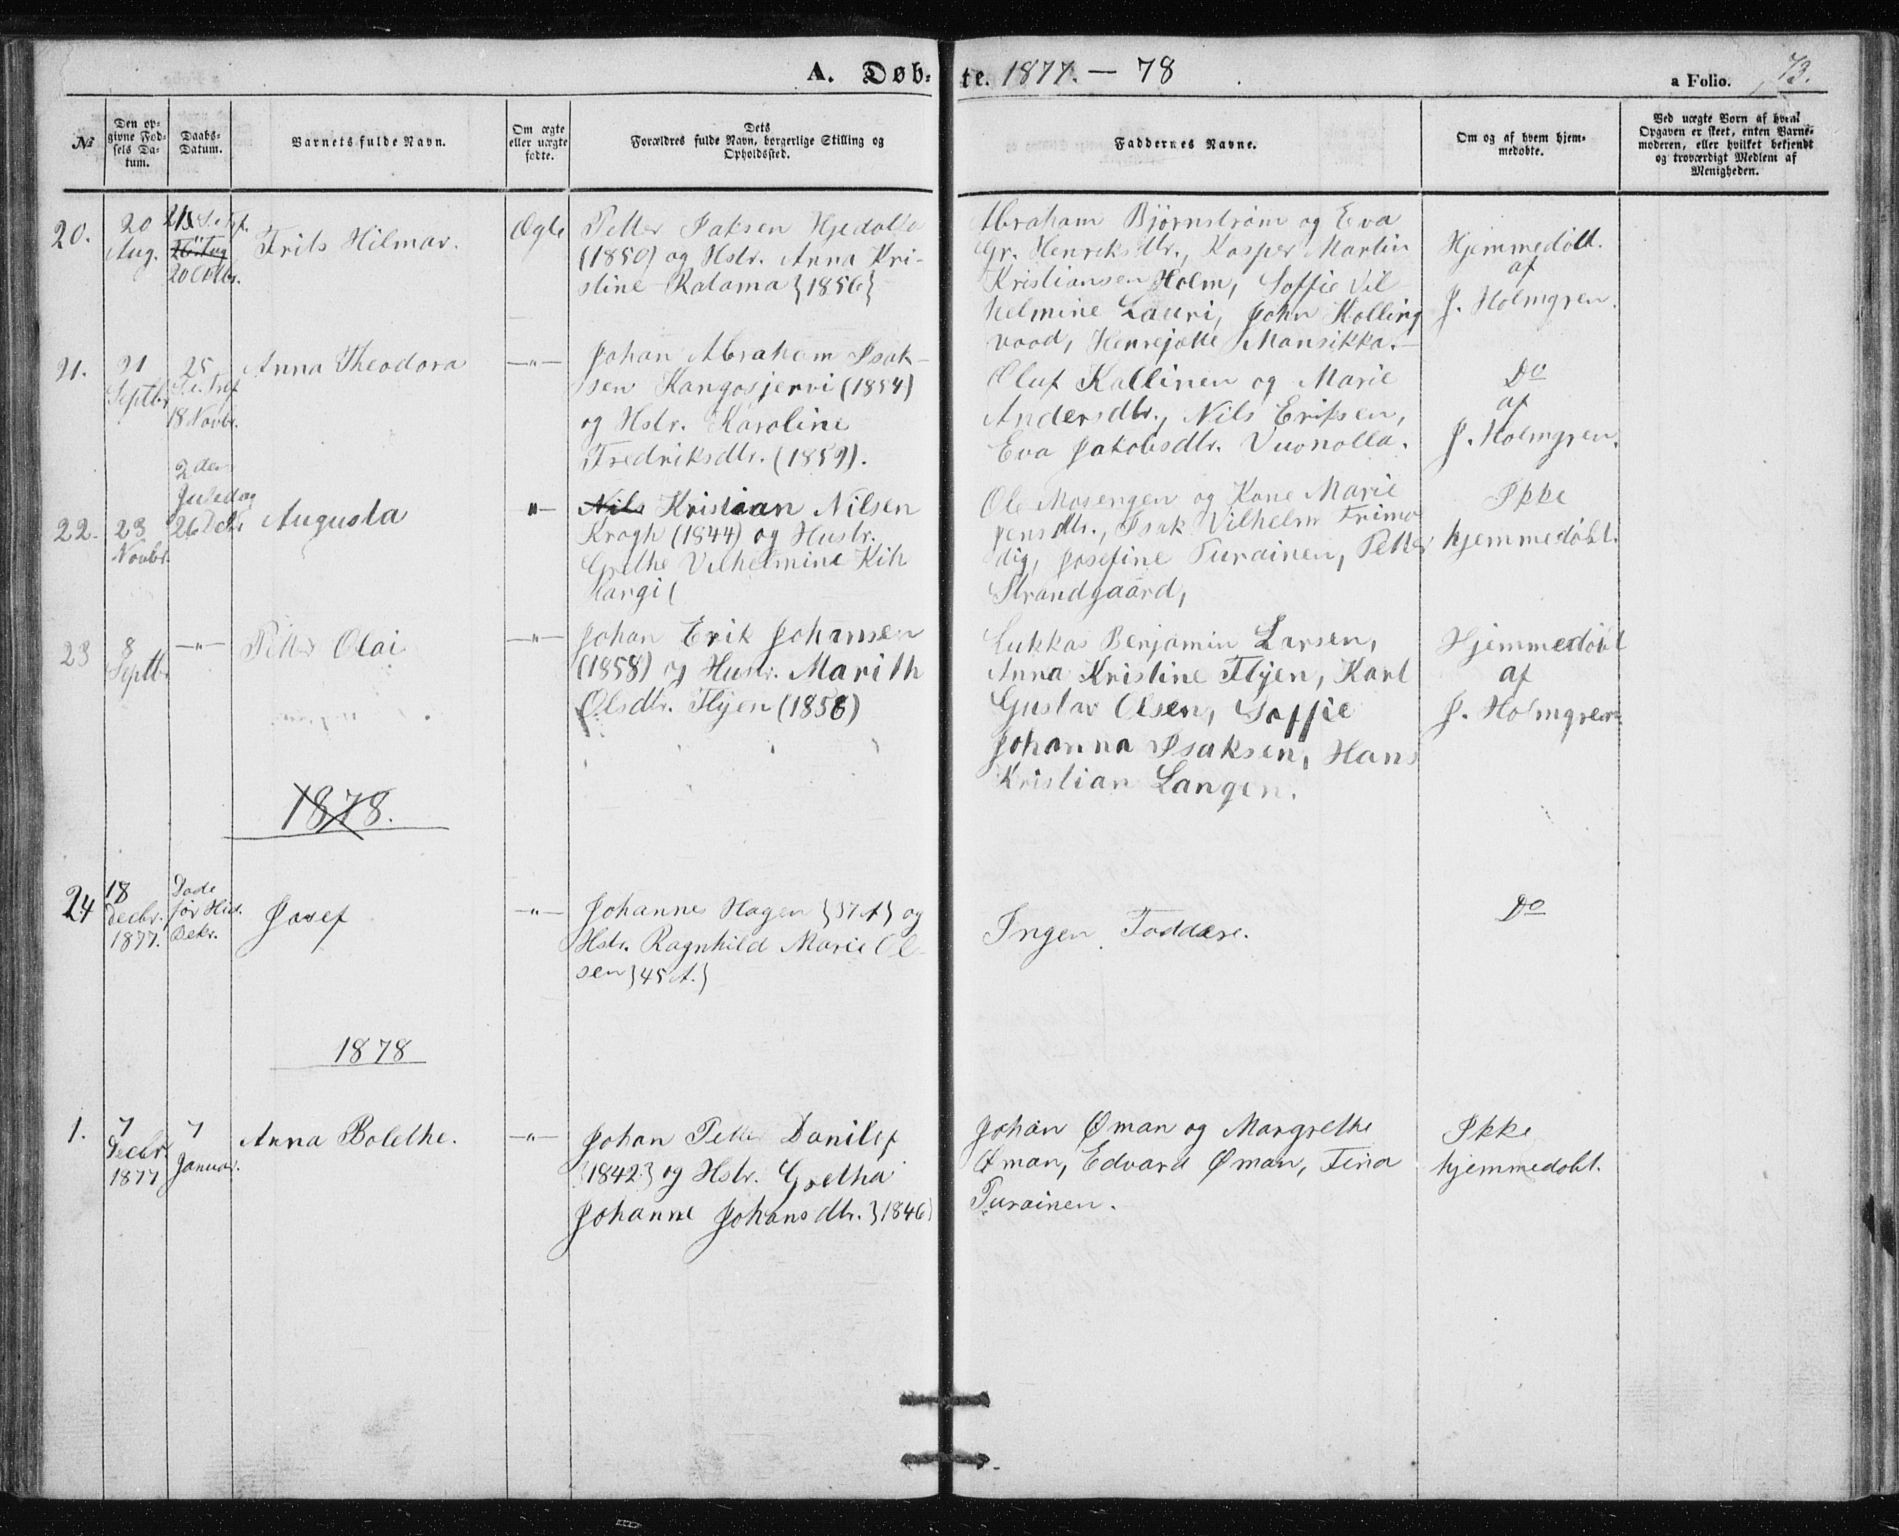 A. Døb- te. 1877. — 78
a Folio. 73.
№
Den op-
givne Fød-
sels Da-
tum.
Daabs-
Datum.
Barnets fulde Navn.
Om ægte
eller uægte
fødte.
Dets
Forældres fulde Navn, borgerlige Stilling og
Opholdssted.
Faddernes Navne.
Om og af hvem hjem-
medøbte.
Ved uægte Børn af hvem
Opgaven er skeet, enten Barne-
moderen, eller hvilket bekjendt
og troværdigt Medlem af
Menigheden.
20.
20
Aug.
20 Oktbr.
Frits Hilmar.
Ægte
Petter Isaksen Hjedalla
(1850) og Hstr. Anna Kri-
stine Ratama {1856}
Abraham Bjørnstrøm og Eva
Gr. Henriksdtr., Kasper Martin
Kristiansen Holm, Soffie Vil
helmine Lauri, John Kolling
vood, Henrejette Mansikka.
Hjemmedøbt.
af
J. Holmgren.
21.
21
Septbr.
25
Septbr
18 Novbr.
Anna Theodora
—"—
Johan Abraham Isak-
sen Kangosjervi (1854)
og Hstr. Karoline
Fredriksdtr. (1859).
Oluf Kallinen og Marie
Andersdtr., Nils Eriksen,
Eva Jakobsdtr. Vuonolla.
Do
af
J. Holmgren.
22.
23
Novbr.
2den
Juledag
26 Dcbr
Augusta
—"—
Nils Kristian Nilsen
Krogh (1844) og Hustr.
Grethe Vilhelmine Kih
langi (
Ole Mosengen og Kone Marie
Jensdtr., Isak Vilhelm Frimo
dig, Josefine Turainen, Petter
Strandgaard,
Ikke
hjemmedøbt.
23
8
Septbr.
—"—
Petter Olai
—"—
Johan Erik Johansen
(1858) og Hustr. Marith
Olsdtr. Flyen (1858)
Lukkas Benjamin Larsen,
Anna Kristine Flyen, Karl
Gustav Olsen, Soffie
Johanna Isaksen, Hans
Kristian Langen.
Hjemmedøbt
af
J. Holmgren
1878.
24
18
Decbr.
1877.
Døde
før Hid.
Josef
—"—
Johannes Hagen {37 A} og
Hstr. Ragnhild Marie Ol-
sen {45 A.}
Ingen Faddere.
Do
1878
1.
7
Decbr
1877
7
Januar.
Anna Bolethe.
—"—
Johan Petter Danilef
{1842} og Hstr. Gretha
Johanne Johansdtr. {1846}
Johan Øman og Margrethe
Øman, Edvard Øman, Fina
Turainen.
Ikke
hjemmedøbt.